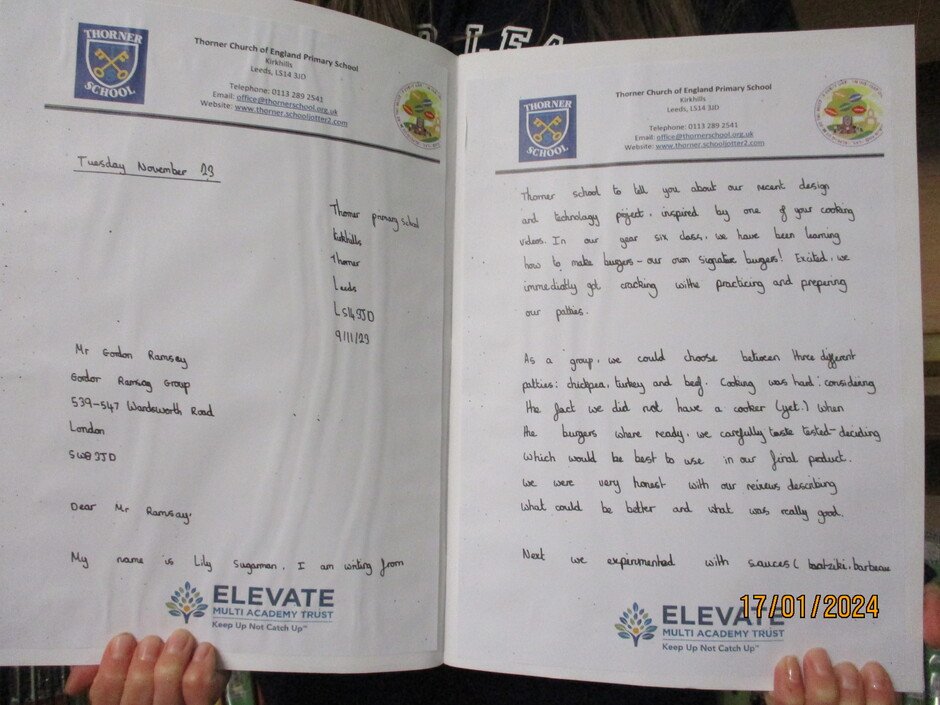 THORNER
SCHOOL
Thorner Church of England Primary School
Kirkhills
Leeds, LS14 3JD
Telephone: 0113 289 2541
Email: office@thornerschool.org.uk
Website: www.thorner.schooljotter2.com
Tuesday November 23
Thorner primary school
Kirkhills
Thorner
Leeds
LS143JD
9/11/23
Mr Gordon Ramsey
Gordon Ramsay Group
539-547 Wandsworth Road
London
SW8 3JD
Dear Mr Ramsay,
My name is Lily Sugarman, I am writing from
ELEVATE
MULTI ACADEMY TRUST
Keep Up Not Catch Up™
THORNER
SCHOOL
Thorner Church of England Primary School
Kirkhills
Leeds, LS14 3JD
Telephone: 0113 289 2541
Email: office@thornerschool.org.uk
Website: www.thorner.schooljotter2.com
Thorner school to tell you about our recent design
and technology project, inspired by one of your cooking
videos. In our year six class, we have been learning
how to make burgers - our own signature burgers! Excited, we
immediatly got cracking withe practicing and preparing
our patties.
As a group, we could choose between three different
patties: chickpea, turkey and beef. Cooking was hard: considering
the fact we did not have a cooker (yet.) When
the burgers where ready, we carefully taste tested-deciding
which would be best to use in our final product.
We were very honest with our reirews describing
what could be better and what was really good.
Next we experimented with sauces (tzatziki, barbecue
ELEVATE
MULTI ACADEMY TRUST
Keep Up Not Catch Up™
17/01/2024